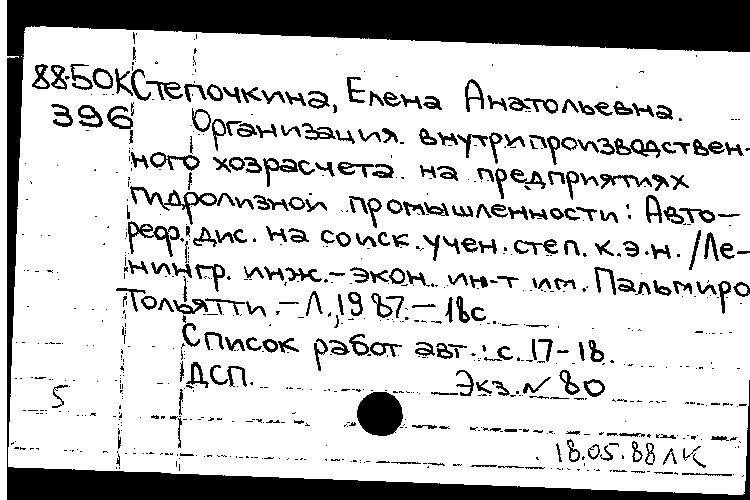 88-50К Степочкина, Елена Анатольевна.
396 Организация внутрипроизводствен-
ного хозрасчета на предприятиях
гидролизной промышленности: Авто-
реф. дис. на соиск. учен. степ. к.э.н. /Ле-
нингр. инж.-экон. ин-т им. Пальмиро
Тольятти. - Л., 1987. - 18с.
Список работ авт.: с. 17-18.
ДСП. Экз. № 80
5
18.05.88 ЛК